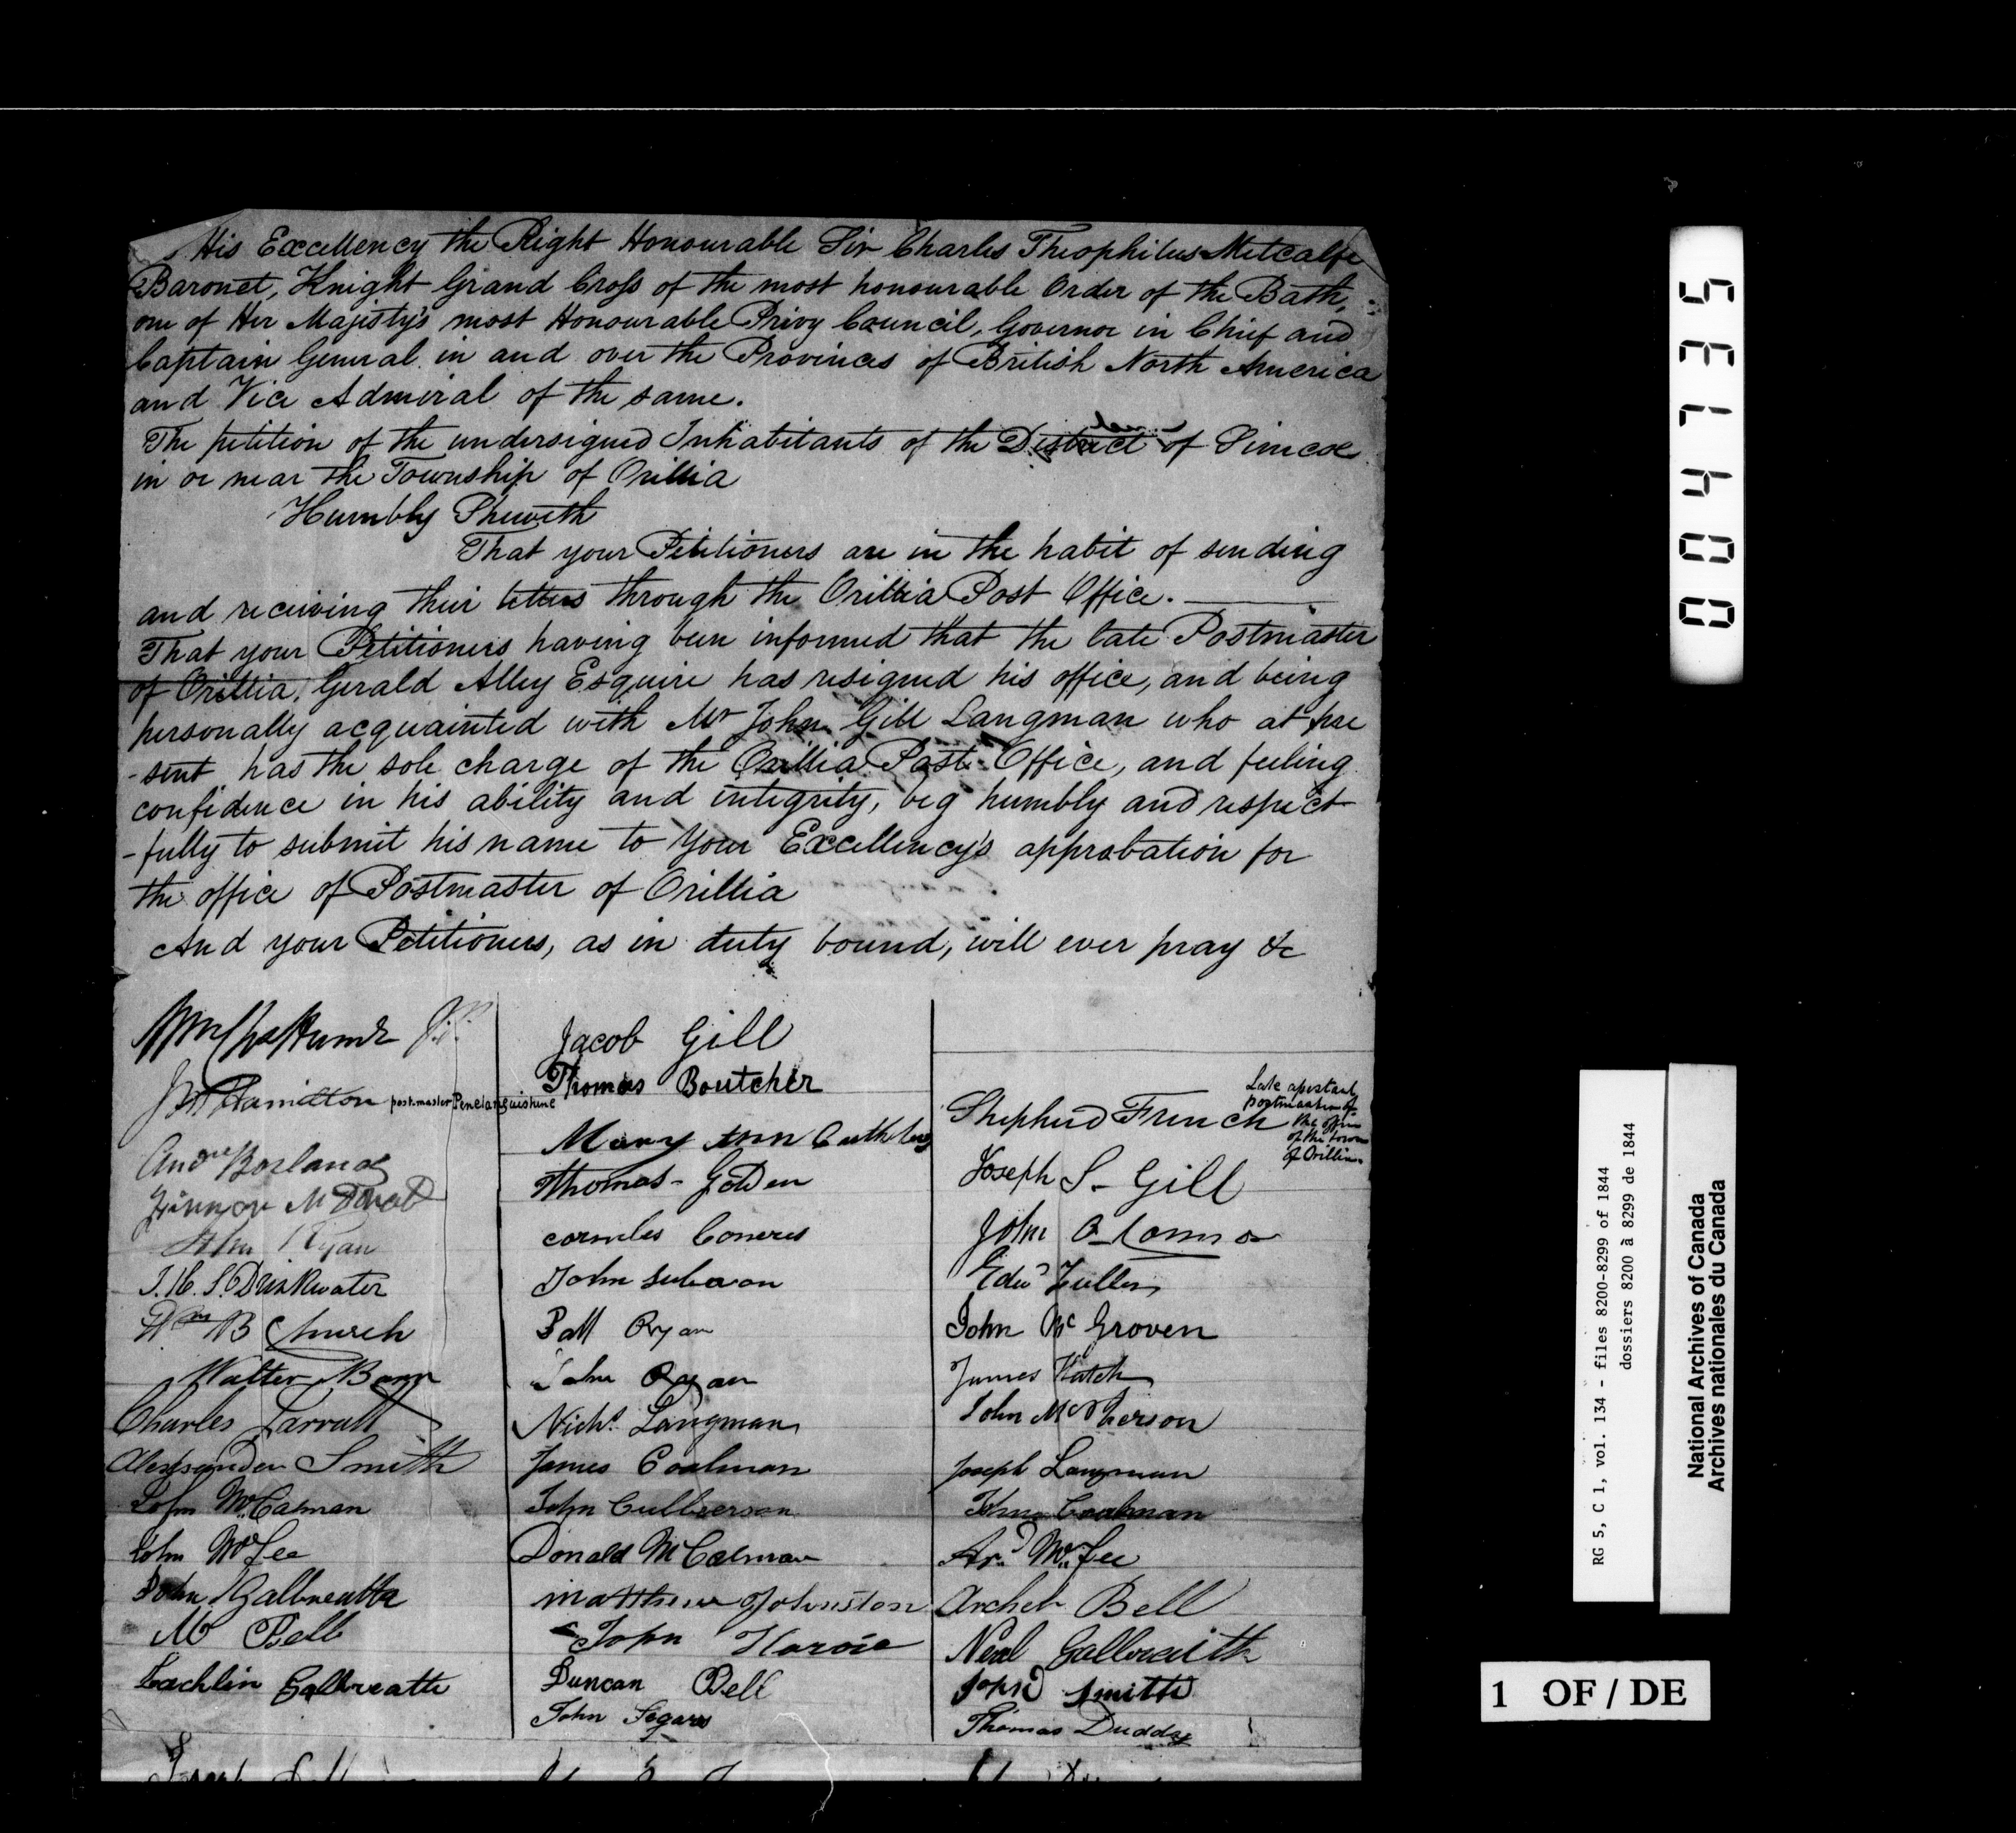 His Excellency the Right Honourable Sir Charles Theophilus Metcalfe
Baronet, Knight Grand Cross of the most honourable Order of the Bath,
one of Her Majesty's most Honourable Privy Council, Governor in Chief and
Captain General in and over the Provinces of British North America
and Vice Admiral of the same.
The petition of the undersigned Inhabitants of the District of Simcoe
in or near the Township of Orillia
Humbly Sheweth
That your Petitioners are in the habit of sending
and receiving their letters through the Orillia Post Office.
That your Petitioners having been informed that the late Postmaster
of Orillia, Gerald Alley Esquire has resigned his office, and being
personally acquainted with Mr John Gill Langman who at pre
-sent has the sole charge of the Orillia Post Office, and feeling
confidence in his ability and integrity, beg humbly and respect
-fully to submit his name to your Excellency's approbation for
the office of Postmaster of Orillia
And your Petitioners, as in duty bound, will ever pray &c
J.P.
Hamilton postmaster Penetanguishine
Andw Borland
John Ryan
J. H. S. Drinkwater
Wm B Church
Walter
Charles Jarratt
Alexsander Smith
John McCalman
John McFee
John Galbreath
M Bell
Lachlin Galbreath
Jacob Gill
Thomas Boutcher
Mary Ann
Thomas Golden
John
Patt Ryan
John Ryan
Nichs Langman
James Coalman
John Culberson
Donald McCalman
Matthew Johnston
John Harvie
Duncan Bell
John Segars
Shepherd French Late assistant
postmaster of
the office
of the town
of Orillia
Joseph S. Gill
John
Edwd Fuller
John McGroven
James Hatch
John McPherson
Joseph Langman
John Coalman
Ard McFee
Archeb Bell
Neal Galbreaith
John Smith
Thomas Duddy
004735
RG 5, C 1, vol. 134 - files 8200-8299 of 1844
dossiers 8200 à 8299 de 1844
National Archives of Canada
Archives nationales du Canada
1 OF / DE